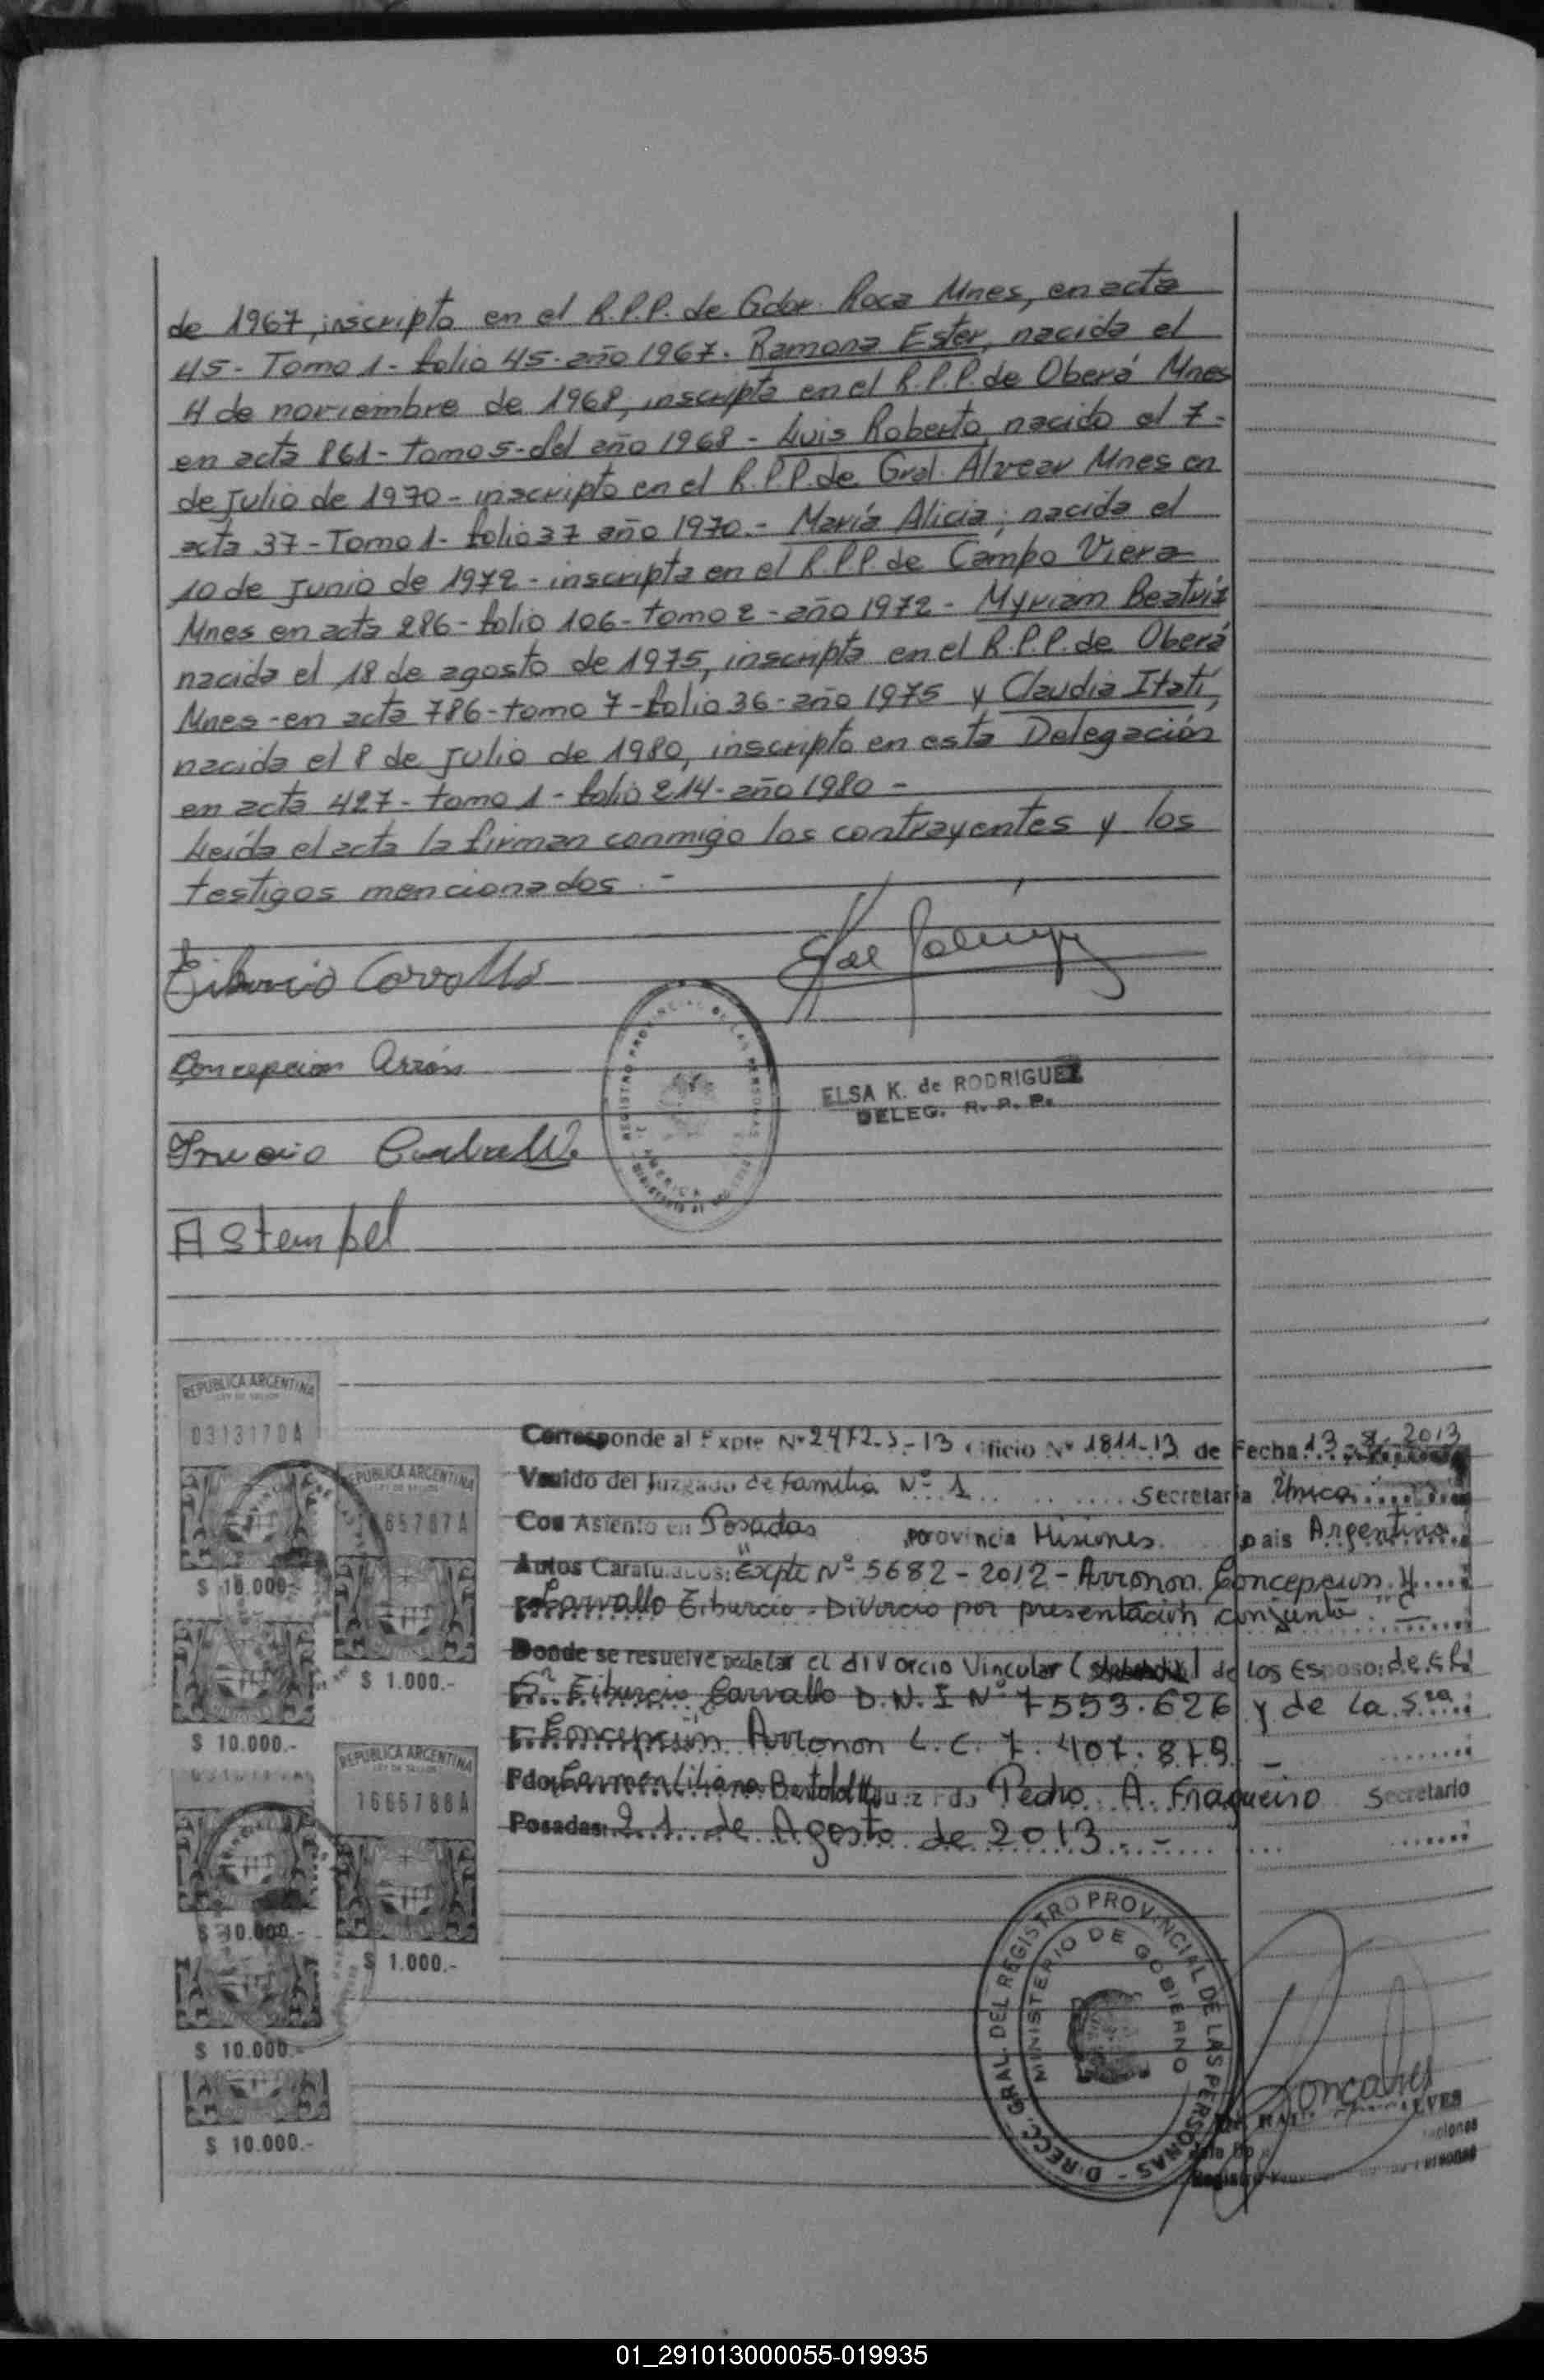 de 1967, inscripto en el R.P.P. de Gdor. Roca Mnes, en acta
45- Tomo 1- folio 45- año 1967. Ramona Ester, nacida el
4 de noviembre de 1968, inscripta en el R.P.P. de Oberá Mnes
en acta 861- tomo 5- del año 1968 - Luis Roberto, nacido el 7-
de julio de 1970- inscripto en el R.P.P. de Gral. Alvear Mnes en
acta 37- Tomo 1- folio 37 año 1970.- María Alicia, nacida el
10 de junio de 1972- inscripta en el R.P.P. de Campo Viera
Mnes en acta 286- folio 106- tomo 2- año 1972- Myriam Beatriz
nacida el 18 de agosto de 1975, inscripta en el R.P.P. de Oberá
Mnes- en acta 786- tomo 7- folio 36- año 1975 y Claudia Itatí,
nacida el 8 de julio de 1980, inscripta en esta Delegación
en acta 427- tomo 1- folio 214- año 1980 -
Leída el acta la firman conmigo los contrayentes y los
testigos mencionados.-
Tiburcio Carvallo
Concepcion Arrón
ELSA K. de RODRIGUEZ
DELEG. R. P. P.
REGISTRO PROVINCIAL DE LAS PERSONAS
A Stempel
REPUBLICA ARGENTINA
LEY DE SELLOS
0313170A
REPUBLICA ARGENTINA
65787A
$ 10.000.-
$ 1.000.-
$ 10.000.-
REPUBLICA ARGENTINA
1665788A
$ 10.000.-
$ 1.000.-
$ 10.000.-
$ 10.000.-
Corresponde al Expte Nº 2472-S-13 Oficio Nº 1811-13 de Fecha 13-8-2013
Venido del Juzgado de Familia Nº 1 Secretaria Unica
Con Asiento en Posadas provincia Misiones pais Argentina
Autos Caratulados: "Expte Nº 5682-2012- Arronon Concepcion y
Carvallo Tiburcio - Divorcio por presentación conjunta"
Donde se resuelve decretar el divorcio Vincular ( ) de los Esposos: de el
Sr. Tiburcio Carvallo D.N.I Nº 7553.626 y de la Sra
Concepción Arronon L.C. 7.407.879 -
Fdo: Carmen Liliana Juez Fdo Pedro A. Fragueiro Secretario
Posadas: 21 de Agosto de 2013.-
DIRECC. GRAL. DEL REGISTRO PROVINCIAL DE LAS PERSONAS -
MINISTERIO DE GOBIERNO
01_291013000055-019935